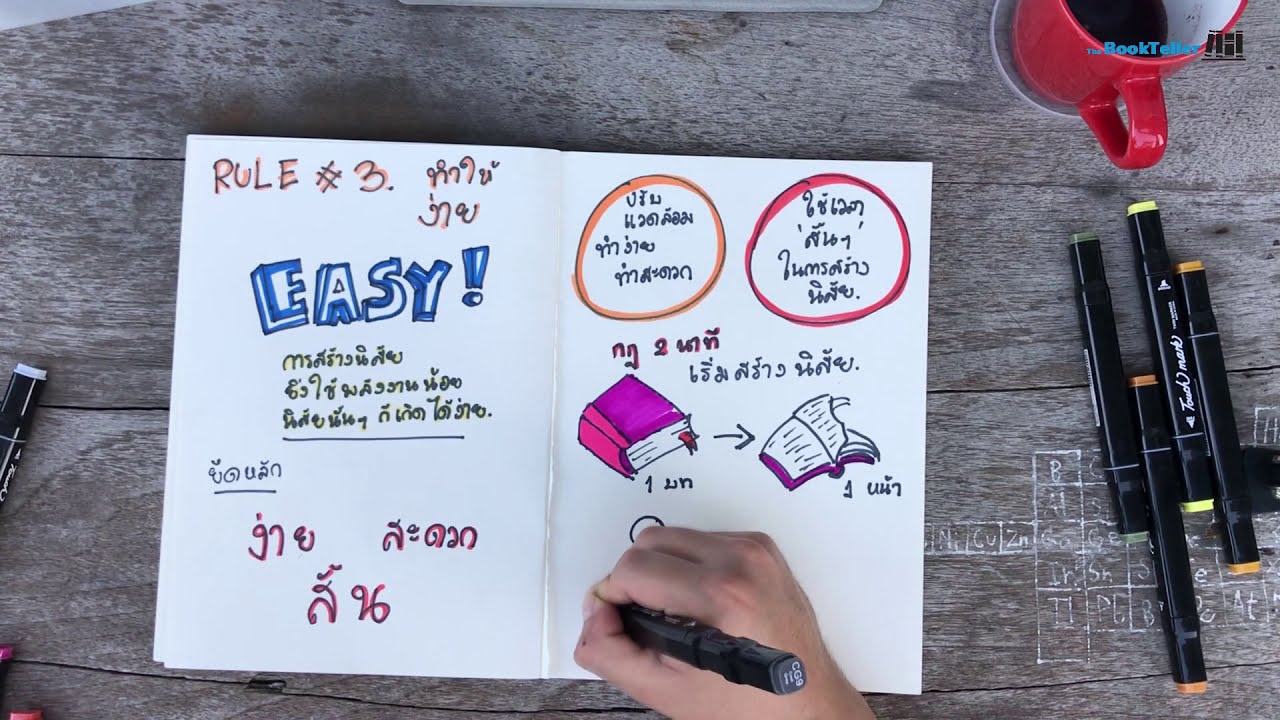 The BookTeller
RULE # 3. ทำให้
ง่าย
EASY!
การสร้างนิสัย
ยิ่งใช้ พลังงาน น้อย
นิสัยนั้นๆ ก็เกิดได้ง่าย.
ยึดหลัก
ง่าย สะดวก
สั้น
ปรับ
แวดล้อม
ทำง่าย
ทำสะดวก
ใช้เวลา
'สั้นๆ'
ในการสร้าง
นิสัย.
กฎ 2 นาที
เริ่มสร้างนิสัย.
1 บท
1 หน้า
Touch mark
CG9
B
Ni Cu Zn Ga Ge
In Sn
Tl Pb At